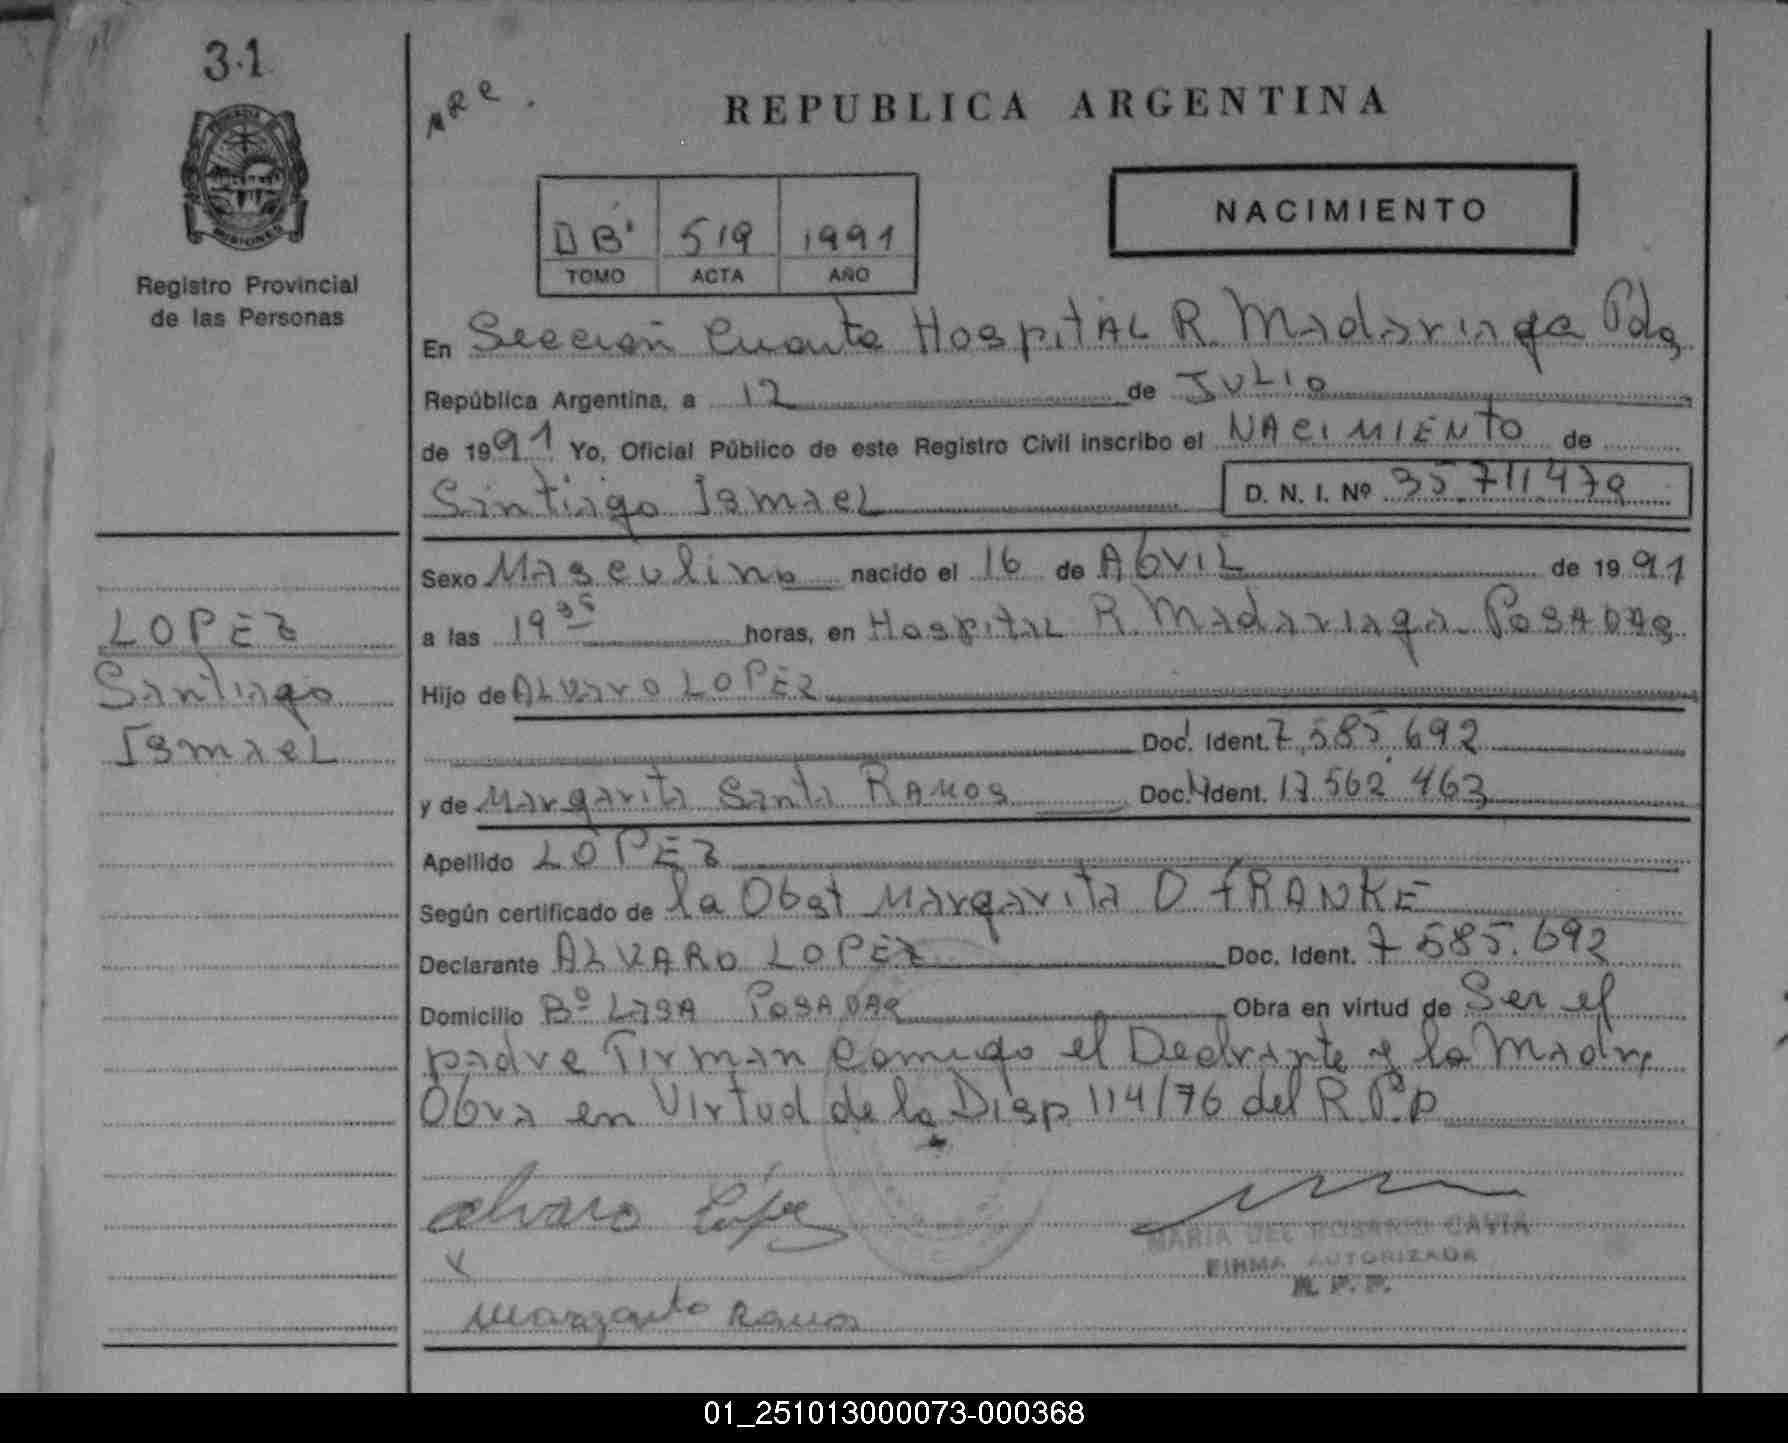 31
MRC.
REPUBLICA ARGENTINA
MISIONES
Registro Provincial
de las Personas
DB' 519 1991
TOMO ACTA AÑO
NACIMIENTO
En Sección Cuarta Hospital R. Madariaga Pdas
República Argentina, a 12 de Julio
de 1991 Yo, Oficial Público de este Registro Civil inscribo el NACIMIENTO de
Santiago Ismael
D. N. I. Nº 35.711.479
Sexo Masculino nacido el 16 de Abril de 1991
a las 19 35 horas, en Hospital R. Madariaga Posadas
LOPEZ
Santiago
Ismael
Hijo de Alvaro LOPEZ
Doc. Ident. 7.585.692
y de Margarita Santa Ramos Doc. Ident. 17.562.463
Apellido LOPEZ
Según certificado de la Obst Margarita D FRANKE
Declarante ALVARO LOPEZ Doc. Ident. 7.585.692
Domicilio Bº Posadas Obra en virtud de Ser el
padre Firman Comigo el Declarante y la Madre
Obra en Virtud de la Disp 114/76 del R.P.P
Alvaro López
MARIA DEL ROSARIO CAVIA
FIRMA AUTORIZADA
R. P. P.
Margarita Ramos
01_251013000073-000368